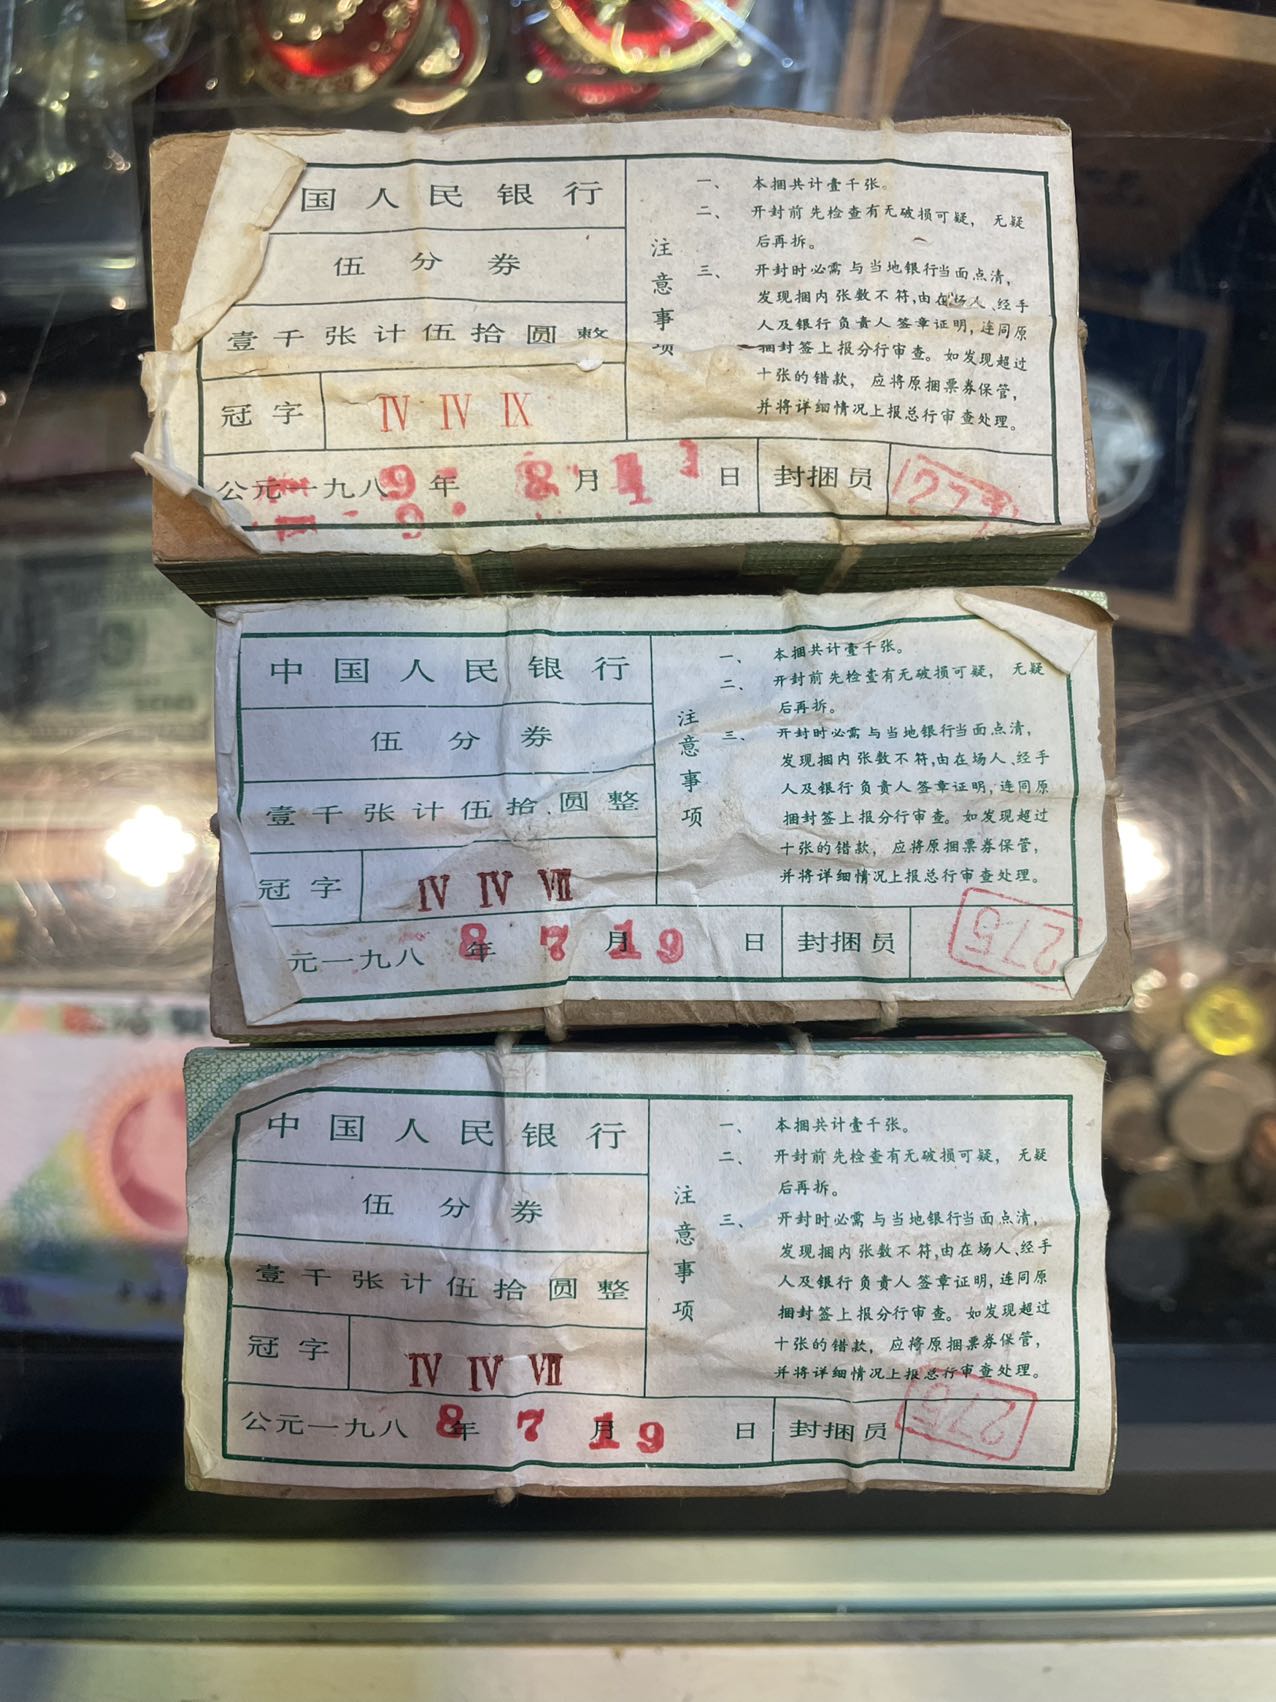 国人民银行
伍分券
壹千张计伍拾圆整
冠字 IV IV IX
公元一九八9年 8月11日 封捆员 27
注意事项
一、本捆共计壹千张。
二、开封前先检查有无破损可疑，无疑
后再拆。
三、开封时必需与当地银行当面点清，
发现捆内张数不符,由在场人、经手
人及银行负责人签章证明,连同原
捆封签上报分行审查。如发现超过
十张的错款，应将原捆票券保管，
并将详细情况上报总行审查处理。
中国人民银行
伍分券
壹千张计伍拾圆整
冠字 IV IV VII
元一九八8年7月19日 封捆员 275
注意事项
一、本捆共计壹千张。
二、开封前先检查有无破损可疑，无疑
后再拆。
三、开封时必需与当地银行当面点清，
发现捆内张数不符,由在场人、经手
人及银行负责人签章证明,连同原
捆封签上报分行审查。如发现超过
十张的错款，应将原捆票券保管，
并将详细情况上报总行审查处理。
中国人民银行
伍分券
壹千张计伍拾圆整
冠字 IV IV VII
公元一九八8年7月19日 封捆员 275
注意事项
一、本捆共计壹千张。
二、开封前先检查有无破损可疑，无疑
后再拆。
三、开封时必需与当地银行当面点清，
发现捆内张数不符,由在场人、经手
人及银行负责人签章证明,连同原
捆封签上报分行审查。如发现超过
十张的错款，应将原捆票券保管，
并将详细情况上报总行审查处理。